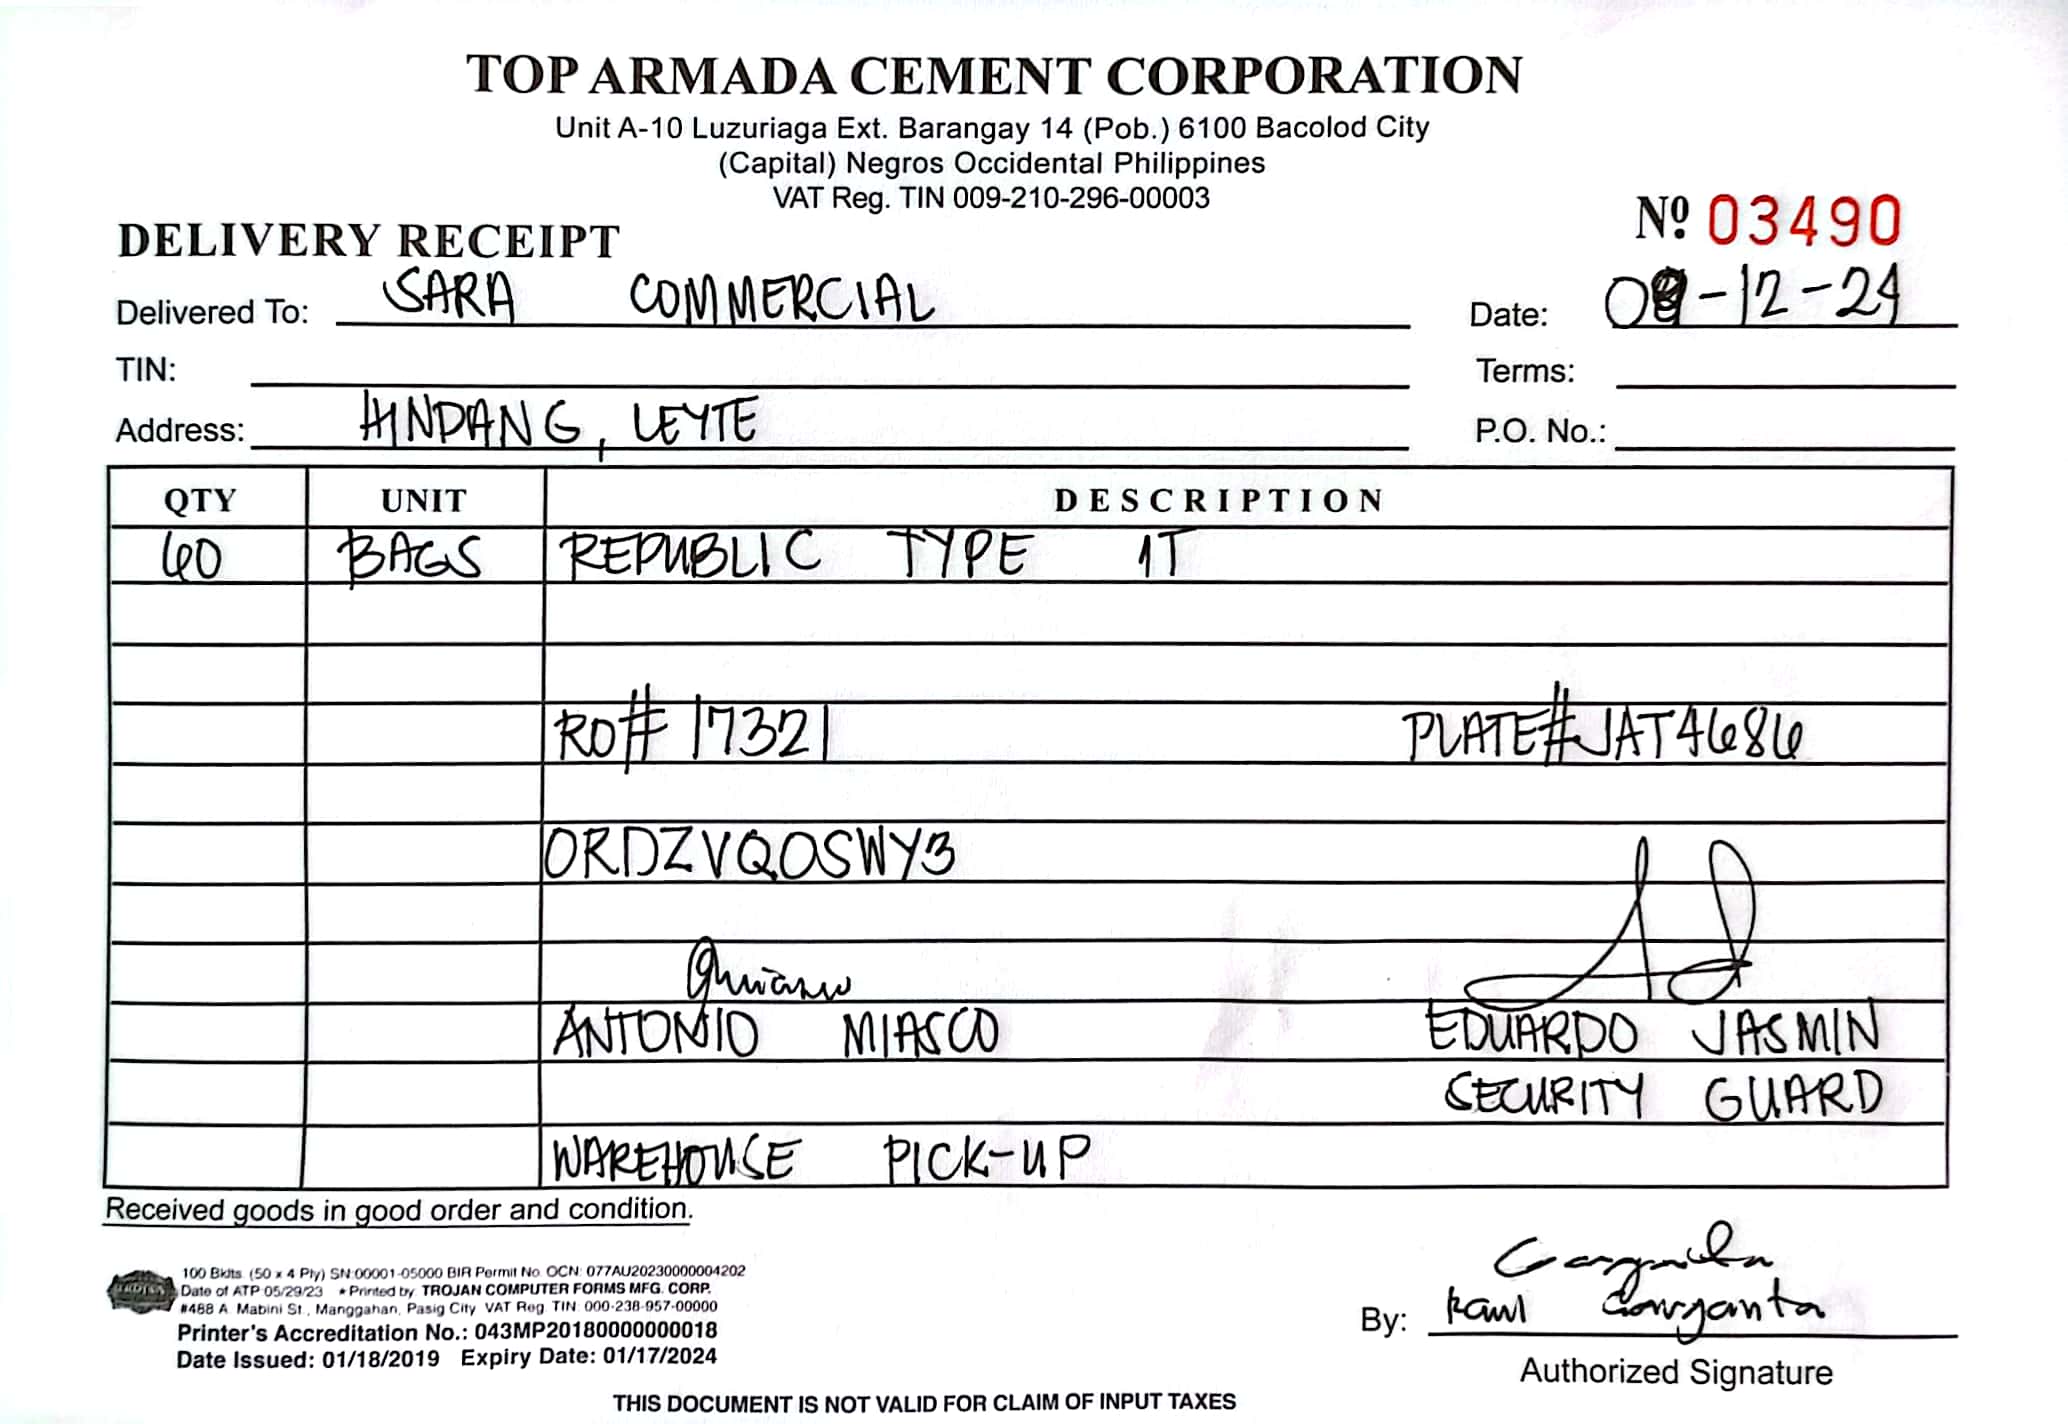 TOP ARMADA CEMENT CORPORATION
Unit A-10 Luzuriaga Ext. Barangay 14 (Pob.) 6100 Bacolod City
(Capital) Negros Occidental Philippines
VAT Reg. TIN 009-210-296-00003
Nº 03490
DELIVERY RECEIPT
Delivered To: SARA COMMERCIAL
Date: 09-12-24
TIN:
Terms:
Address: HINDANG, LEYTE
P.O. No.:
QTY UNIT DESCRIPTION
60 BAGS REPUBLIC TYPE 1T
RO# 17321 PLATE# JAT4686
ORDZVQOSWY3
ANTONIO MIASCO EDUARDO JASMIN
SECURITY GUARD
WAREHOUSE PICK-UP
Received goods in good order and condition.
100 Bklts. (50 x 4 Ply) SN:00001-05000 BIR Permit No. OCN: 077AU20230000004202
Date of ATP 05/29/23 * Printed by: TROJAN COMPUTER FORMS MFG. CORP.
#488 A. Mabini St., Manggahan, Pasig City VAT Reg. TIN: 000-238-957-00000
Printer's Accreditation No.: 043MP20180000000018
Date Issued: 01/18/2019 Expiry Date: 01/17/2024
By:
Authorized Signature
THIS DOCUMENT IS NOT VALID FOR CLAIM OF INPUT TAXES